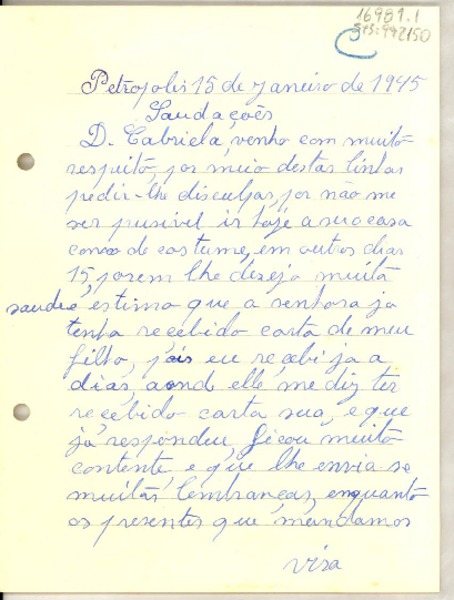 16989.1
sys: 992150
Petropolis 15 de Janeiro de 1945
Saudações
D. Gabriela, venho com muito
respeito, por meio destas linhas
pedir-lhe disculpas, por não me
ser pusivel ir hoje a sua casa
como de costume, em outros dias
15, porem lhe dezejo muita
saude e, estimo que a senhora ja
tenha recebido carta de meu
filho, pois eu recebi ja a
dias, aonde elle me diz ter
recebido carta sua, e que
já respondeu, ficou muito
contente, e que lhe envia se
muitas lembranças, enquanto
os presentes que mandamos
vira